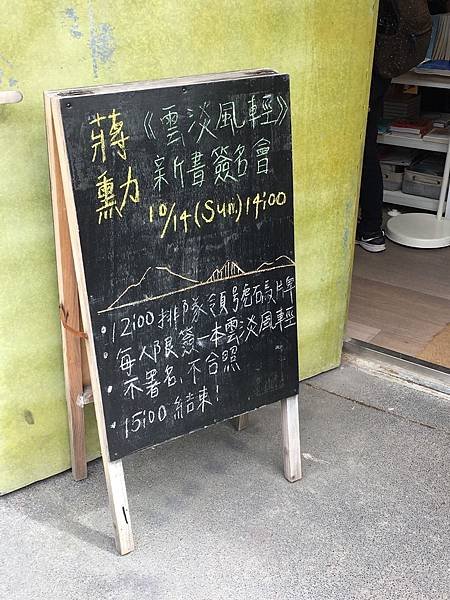 蔣勳
《雲淡風輕》
新書簽名會
10/14(Sun.)14:00
12:00排隊領號碼牌
每人限簽一本雲淡風輕
不署名、不合照
15:00 結束!